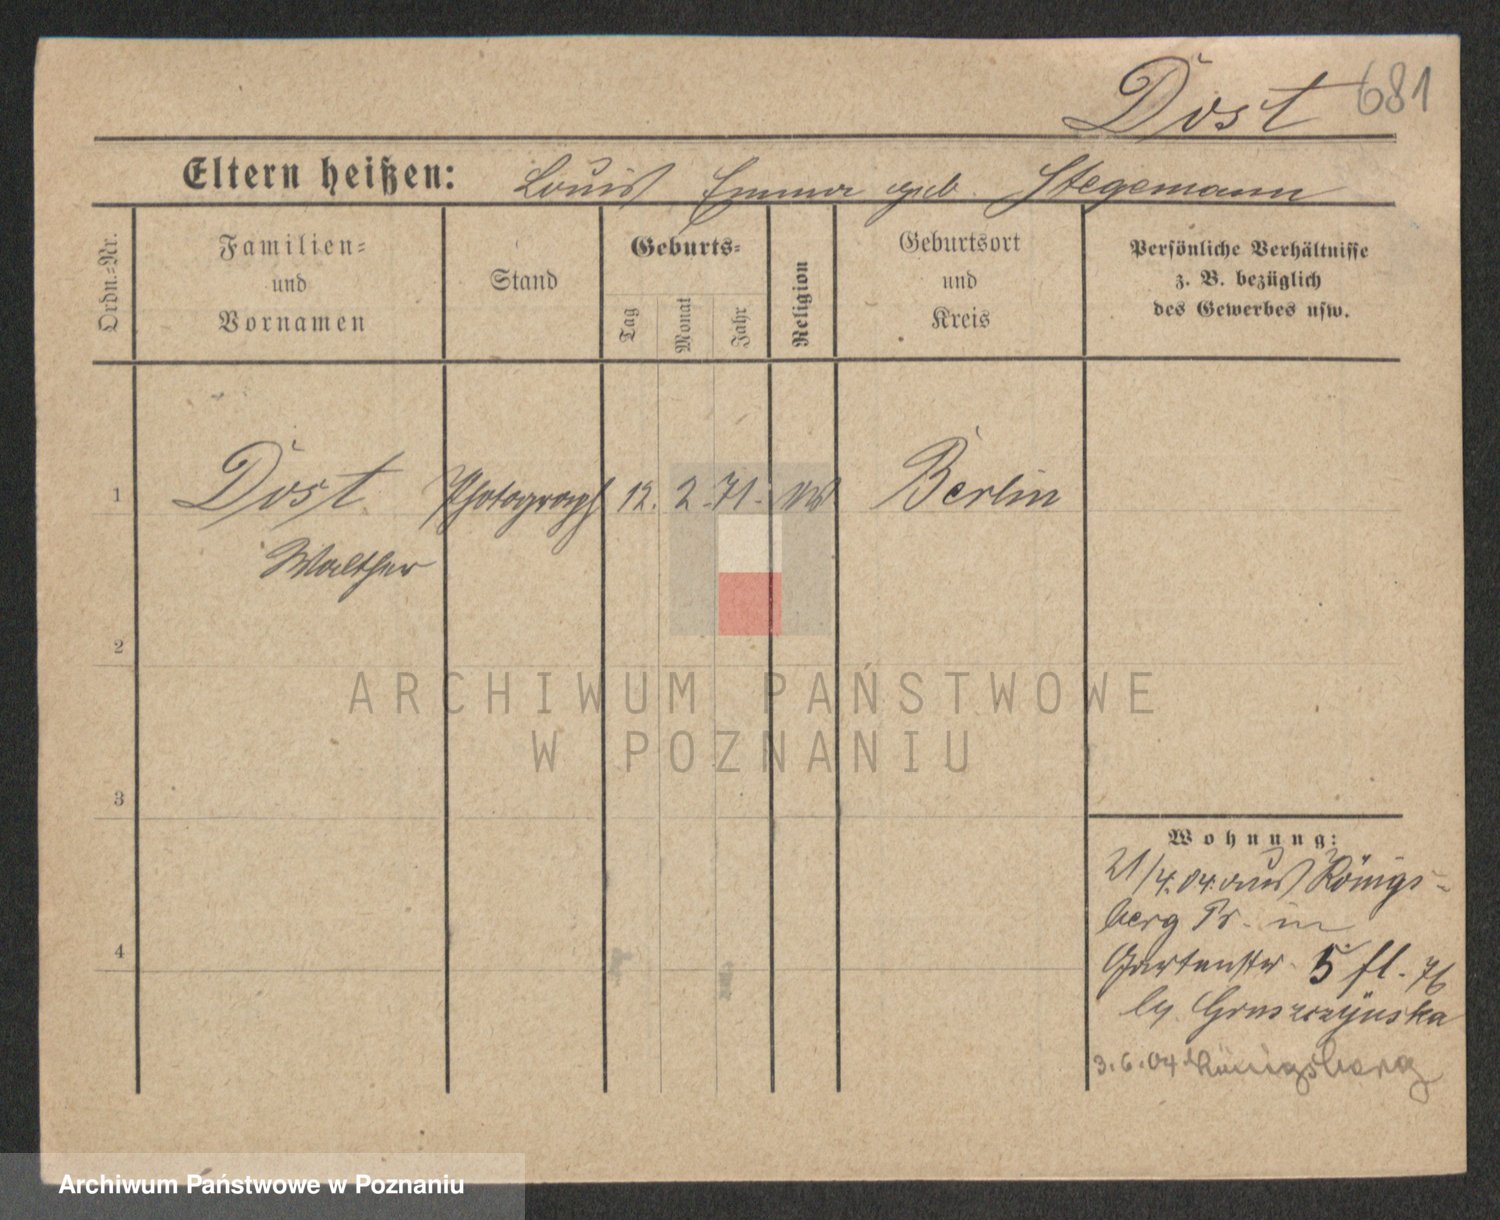 Dost 681
Eltern heißen: Louis Emma geb. Stegemann
Ordn.-Nr.
Familien-
und
Vornamen
Stand
Geburts-
Tag
Monat
Jahr
Religion
Geburtsort
und
Kreis
Persönliche Verhältnisse
z. B. bezüglich
des Gewerbes usw.
1 Dost Photograph 12. 2. 71. Berlin
Walther
2
3
4
Wohnung:
21/4.04. aus Königs-
berg Pr. in
Gartenstr. 5 fl.
by Gruszczynska
3.6.04 Königsberg
ARCHIWUM PAŃSTWOWE
W POZNANIU
Archiwum Państwowe w Poznaniu